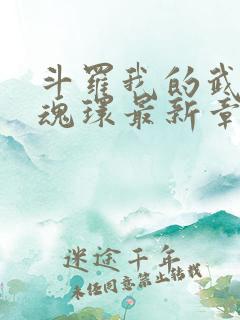 斗罗我的武
魂环最新章
迷途千年
未经同意禁止转载